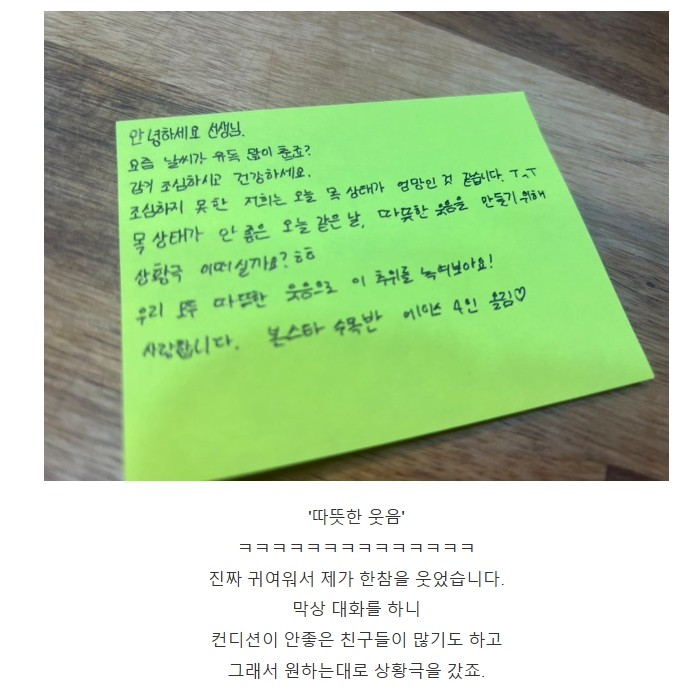 안녕하세요 선생님.
요즘 날씨가 유독 많이 춥죠?
감기 조심하시고 건강하세요.
조심하지 못한 저희는 오늘 목 상태가 엉망인 것 같습니다. ㅜ^ㅜ
목 상태가 안 좋은 오늘 같은 날, 따뜻한 웃음을 만들기 위해
상황극 어떠실까요? ㅎㅎ
우리 모두 따뜻한 웃음으로 이 추위를 녹여보아요!
사랑합니다. 본스타 수목반 에이스 4인 올림♡
'따뜻한 웃음'
ㅋㅋㅋㅋㅋㅋㅋㅋㅋㅋㅋㅋㅋㅋ
진짜 귀여워서 제가 한참을 웃었습니다.
막상 대화를 하니
컨디션이 안좋은 친구들이 많기도 하고
그래서 원하는대로 상황극을 갔죠.